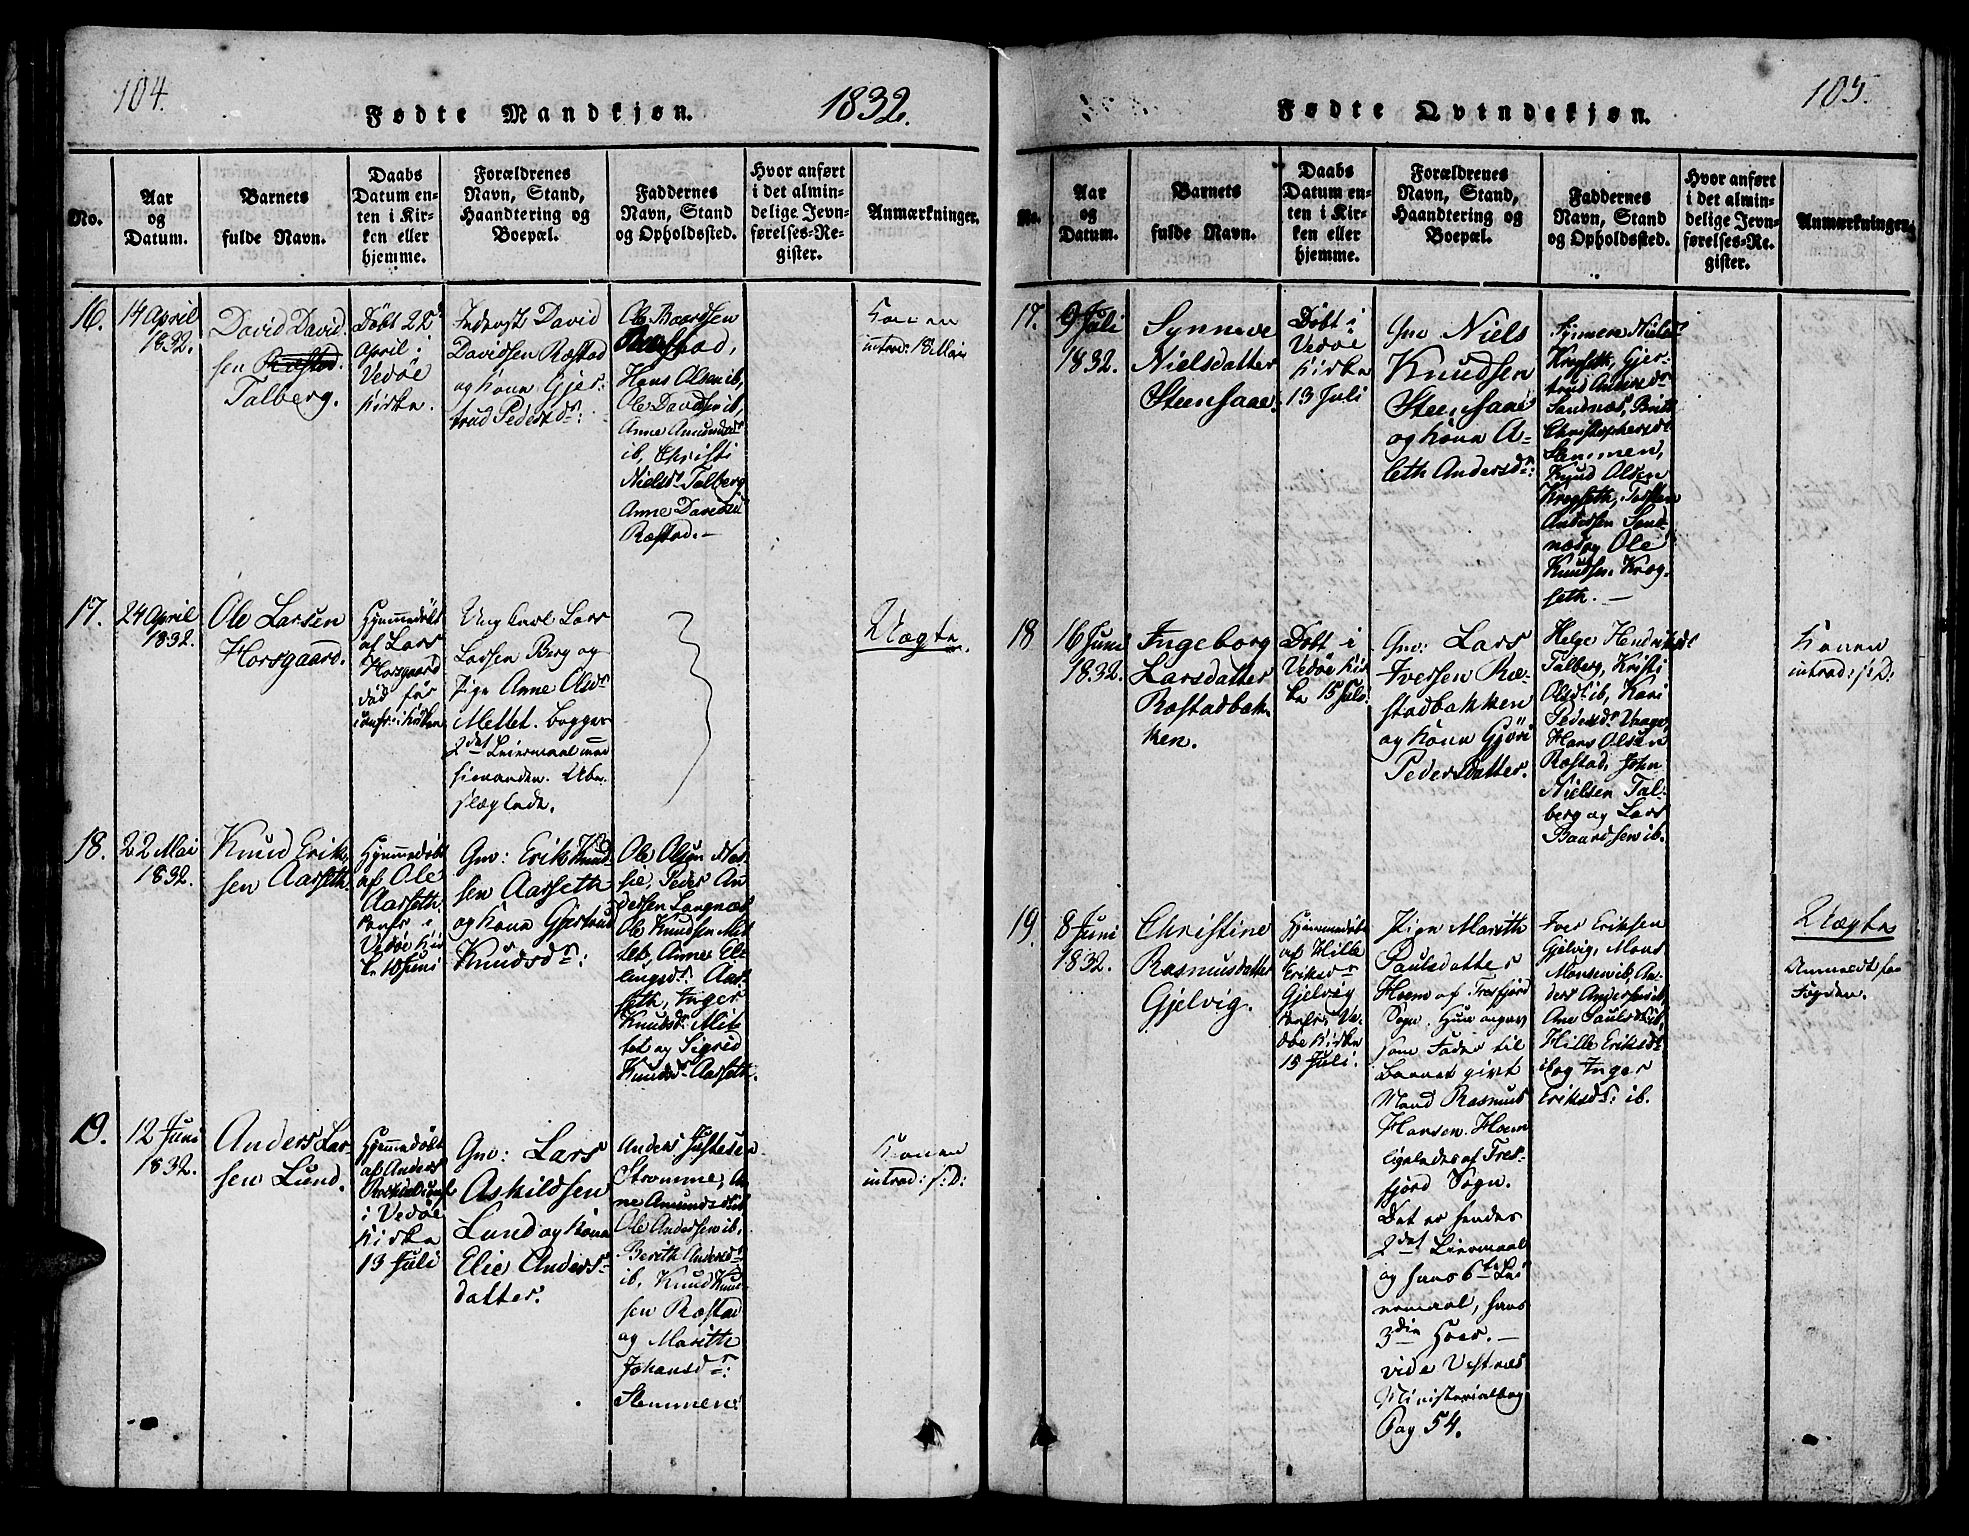 104.
Fødte Mandkjøn.
1832.
No.
Aar
og
Datum.
Barnets
fulde Navn.
Daabs
Datum en-
ten i Kir-
ken eller
hjemme.
Forældrenes
Navn, Stand,
Haandtering og
Boepæl.
Faddernes
Navn, Stand
og Opholdssted.
Hvor anført
i det almin-
delige Jevn-
førelses-Re-
gister.
Anmærkninger.
16.
14 April
1832.
David David-
sen Ræstad.
Talberg.
Døbt 22d
April i
Vedøe
Kirke.
Inderst David
Davidsen Ræstad
og Kone Gjer-
trud Pedersdr:
Ole Baardsen
Ræstad,
Hans Olsen ib,
Ole Davidsen ib,
Anne Amundsdr
ib, Christi
Nielsdr Talberg
Anne Davidsdr
Ræstad.
Konen
introd: 18 Mai
17.
24 April
1832.
Ole Larsen
Horsgaard.
Hjemmedøbt
af Lars
Horsgaard
død før
i Kirken
Ung Karl Lars
Larsen Berg og
Pige Anne Olsdr
Mettet. begges
2det Leiermaal med
hinanden. Ube-
slægtede.
Uægte.
18.
22 Mai
1832.
Knud Erik-
sen Aarseth.
Hjemmedøbt
af Ole
Aarseth.
confr: i
Vedøe Kir
ke 10 Juni
Gm: Erik Knud-
sen Aarseth
og Kone Gjertrud
Knudsdr:
Ole Olsen
Peder An
dersen Langnæs
Ole Knudsen Mit
tet, Anne El-
lingsdr. Aar-
seth, Inger
Knudsdr. Mit-
tet og Sigrid
Knudsdr Aarseth.
19.
12 Juni
1832.
Anders Lar-
sen Lund.
Hjemmedøbt
af Anders
i Vedøe
Kirke
13 Juli
Gm: Lars
Askildsen
Lund og Kone
Elie Anders-
datter.
Anders Justesen
Strømme, An
ne Amundsdr ib
Ole Andersen ib.
Berith Andersdr
ib, Knud Knud-
sen Ræstad
og Marithe
Johansdr:
Stemmen.
Konen
introd: s: D:
105.
Fødte Qvindekjøn.
No.
Aar
og
Datum.
Barnets
fulde Navn.
Daabs
Datum en-
ten i Kir-
ken eller
hjemme.
Forældrenes
Navn, Stand,
Haandtering og
Boepæl.
Faddernes
Navn, Stand
og Opholdssted.
Hvor anført
i det almin-
delige Jevn-
førelses-Re-
gister.
Anmærkninger.
17.
9 Juli
1832.
Synneve
Nielsdatter
Steensaae.
Døbt i
Vedøe
Kirke
13 Juli
Gm Niels
Knudsen
Steensaae
og Kone A-
leth Andersdr:
Synneve Nielsdr
Krogseth, Gjer-
trud Andersdr
Sandnæs, Britt
Christophersdr
Stemmen,
Knud Olsen
Krogseth, Torsten
Andersen Sand-
næs og Ole
Knudsen Krog-
seth.
18
16 Juni
1832.
Ingeborg
Larsdatter
Ræstadbak-
ken.
Døbt i
Vedøe Kir
ke 15 Juli.
Gm: Lars
Iversen Ræ-
stadbakken
og Kone Gjøri
Pedersdatter.
Helge Hendriksdr
Talberg, Kristi
Olsdr ib, Kari
Pedersdr
Hans Olsen
Ræstad, John
Nielsen Tal-
berg og Lars
Baardsen ib.
Konen
introd: s: D:
19.
8 Juni
1832.
Christine
Rasmusdatter
Gjelvig.
Hjemmedøbt
af Hille
Eriksdr
Gjelvig
confr: Ve-
døe Kirke
15 Juli.
Pige Marith
Paulsdatter
Hoem af Tresfjord
Sogn. Hun angav
som Fader til
Barnet givt
Mand Rasmus
Hansen Hoem
ligeledes af Tres-
fjord Sogn.
Det er hendes
2det Leiermaal
og hans 6te Lei
ermaal, hans
3die Hoer.
vide Vestnæs
Ministerialbog
Pag 54.
Iver Eriksen
Gjelvig, Mons
Monsen ib, An-
ders Andersen ib,
Ane Paulsdr ib,
Hille Eriksdr
ib og Inger
Eriksdr: ib.
Uægte
Anmeldt for
Fogden.